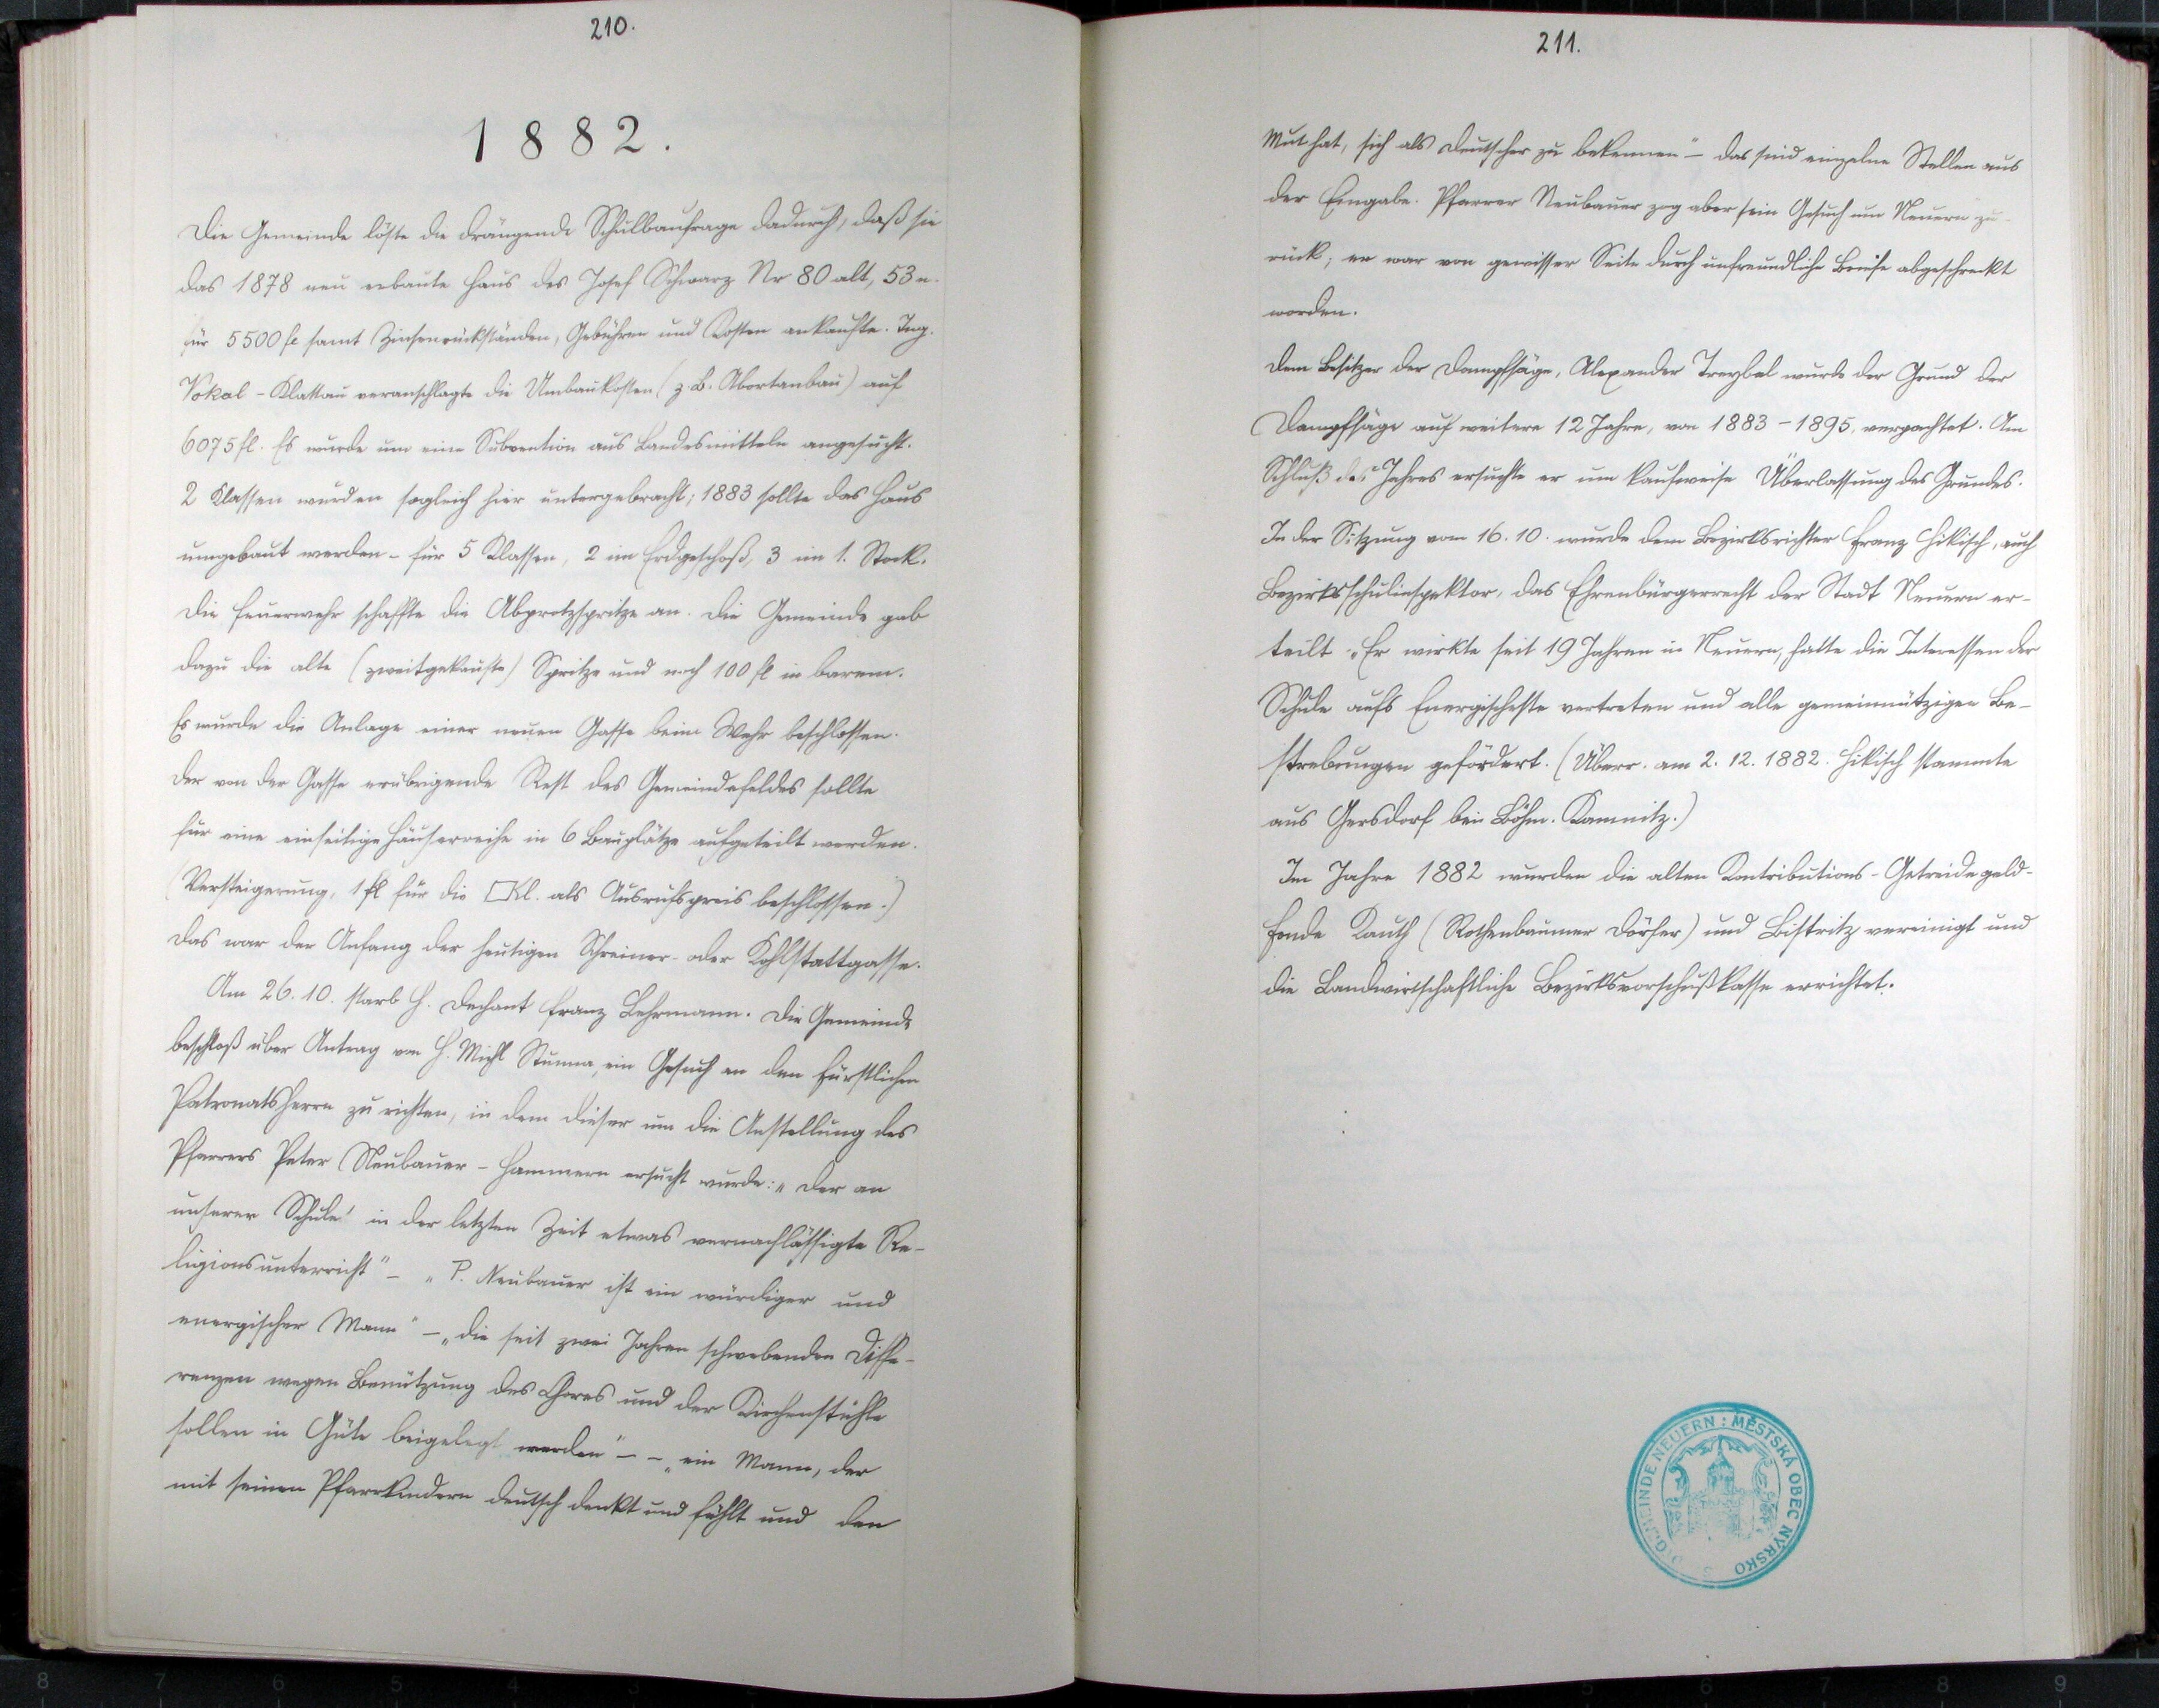 210.
1882.
Die Gemeinde löste die drängende Schulbaufrage dadurch, daß sie
das 1878 neu erbaute Haus des Josef Schwarz Nr 80 alt, 53 n.
für 5500 fl samt Zinsenrückständen, Gebühren und Kosten ankaufte. Ing.
Vokal - Klattau veranschlagte die Umbaukosten (z. B. Abortanbau) auf
6075 fl. Es wurde um eine Subvention aus Landesmitteln angesucht.
2 Klassen wurden sogleich hier untergebracht; 1883 sollte das Haus
umgebaut werden - für 5 Klassen, 2 im Erdgeschoß, 3 im 1. Stock.
Die Feuerwehr schaffte die Abprotzspritze an. Die Gemeinde gab
dazu die alte (zweitgekaufte) Spritze und noch 100 fl in barem.
Es wurde die Anlage einer neuen Gasse beim Wehr beschlossen.
Der von der Gasse erübrigende Rest des Gemeindefeldes sollte
für eine einseitige Häuserreihe in 6 Bauplätze aufgeteilt werden.
(Versteigerung, 1 fl für die □Kl. als Ausrufspreis beschlossen.)
Das war der Anfang der heutigen Schreiner- oder Kohlstattgasse.
Am 26. 10. starb H. Dechant Franz Lehrmann. Die Gemeinde
beschloß über Antrag von H. Michl Stumna, ein Gesuch an den fürstlichen
Patronatsherrn zu richten, in dem dieser um die Anstellung des
Pfarrers Peter Neubauer - Hammern ersucht wurde: „Der an
unserer Schule in der letzten Zeit etwas vernachlässigte Re-
ligionsunterricht" - „P. Neubauer ist ein würdiger und
energischer Mann" - „die seit zwei Jahren schwebenden Diffe-
renzen wegen Benützung des Chores und der Kirchenstühle
sollen in Güte beigelegt werden" - - „ein Mann, der
mit seinen Pfarrkindern deutsch denkt und fühlt und den
211.
Mut hat, sich als Deutscher zu bekennen" - das sind einzelne Stellen aus
der Eingabe. Pfarrer Neubauer zog aber sein Gesuch um Neuern zu-
rück; er war von gewisser Seite durch unfreundliche Briefe abgeschreckt
worden.
Dem Besitzer der Dampfsäge, Alexander Treybal wurde der Grund der
Dampfsäge auf weitere 12 Jahre, von 1883 - 1895, verpachtet. Am
Schluß des Jahres ersuchte er um kaufweise Überlassung des Grundes.
In der Sitzung vom 16. 10. wurde dem Bezirksrichter Franz Hikisch, auch
Bezirksschulinspektor, das Ehrenbürgerrecht der Stadt Neuern er-
teilt. Er wirkte seit 19 Jahren in Neuern, hatte die Interessen der
Schule aufs Energischste vertreten und alle gemeinnützigen Be-
strebungen gefördert. (Überr. am 2. 12. 1882. Hikisch stammte
aus Gersdorf bei Böhm. Kamnitz.)
Im Jahre 1882 wurden die alten Kontributions-Getreidegeld-
fonde Kauth (Rothenbaumer Dörfer) und Bistritz vereinigt und
die Landwirtschaftliche Bezirksvorschußkasse errichtet.
STADTGEMEINDE NEUERN : MĚSTSKÁ OBEC NÝRSKO